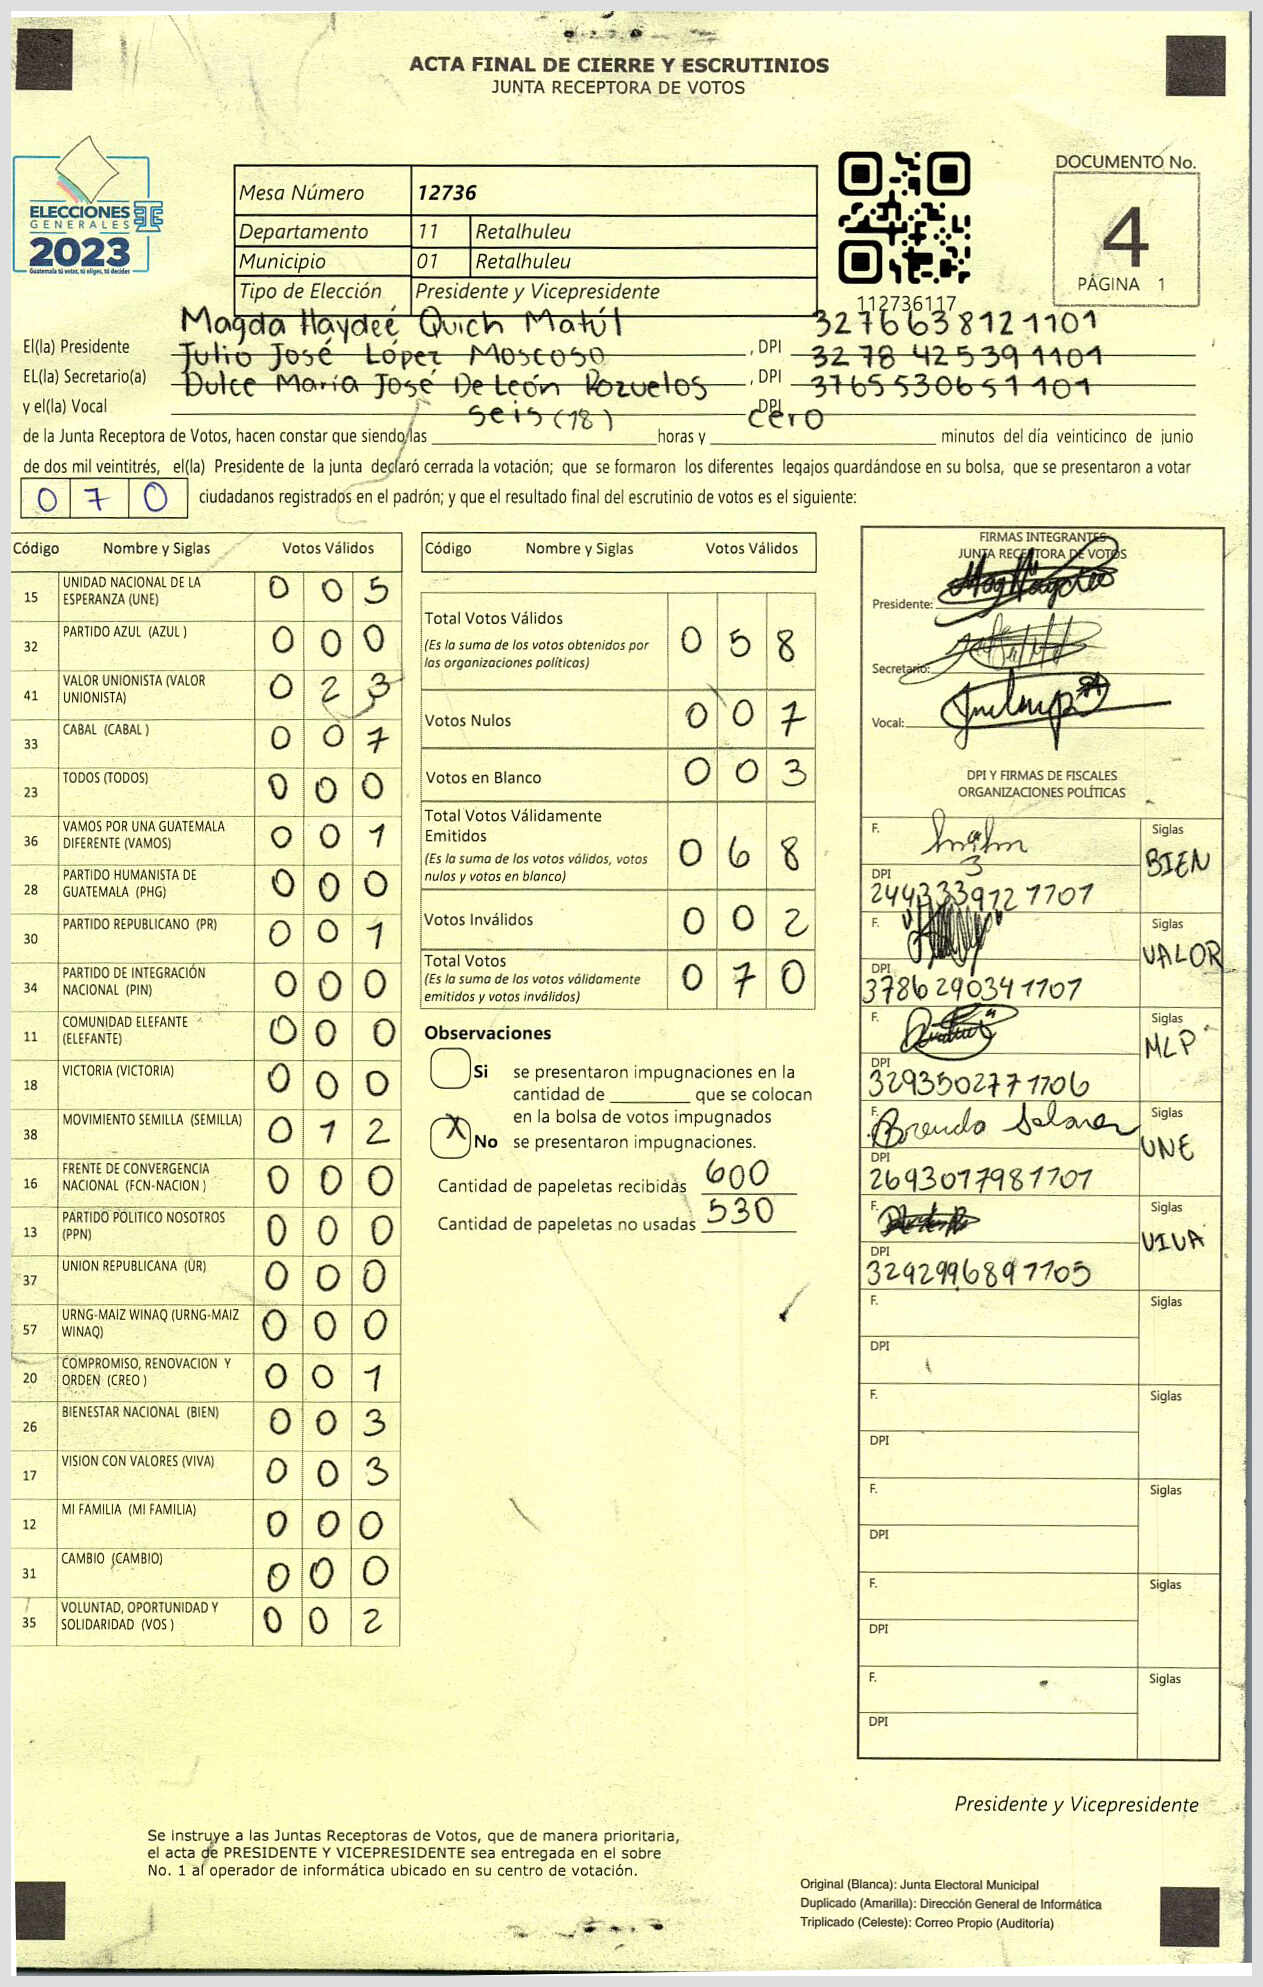 ACTA FINAL DE CIERRE Y ESCRUTINIOS
JUNTA RECEPTORA DE VOTOS
ELECCIONES
GENERALES
2023
Guatemala tú votas, tú eliges, tú decides
Mesa Número 12736
Departamento 11 Retalhuleu
Municipio 01 Retalhuleu
Tipo de Elección Presidente y Vicepresidente
112736117
DOCUMENTO No.
4
PÁGINA 1
Magda Haydeé Quich Matúl 3276638121101
El(la) Presidente Julio José López Moscoso , DPI 3278425391101
EL(la) Secretario(a) Dulce María José De León Pozuelos , DPI 3765530651101
y el(la) Vocal DPI
de la Junta Receptora de Votos, hacen constar que siendo las seis (18) horas y cero minutos del día veinticinco de junio
de dos mil veintitrés, el(la) Presidente de la junta declaró cerrada la votación; que se formaron los diferentes legajos guardándose en su bolsa, que se presentaron a votar
070 ciudadanos registrados en el padrón; y que el resultado final del escrutinio de votos es el siguiente:
Código Nombre y Siglas Votos Válidos
15 UNIDAD NACIONAL DE LA ESPERANZA (UNE) 005
32 PARTIDO AZUL (AZUL ) 000
41 VALOR UNIONISTA (VALOR UNIONISTA) 023
33 CABAL (CABAL ) 007
23 TODOS (TODOS) 000
36 VAMOS POR UNA GUATEMALA DIFERENTE (VAMOS) 001
28 PARTIDO HUMANISTA DE GUATEMALA (PHG) 000
30 PARTIDO REPUBLICANO (PR) 001
34 PARTIDO DE INTEGRACIÓN NACIONAL (PIN) 000
11 COMUNIDAD ELEFANTE (ELEFANTE) 000
18 VICTORIA (VICTORIA) 000
38 MOVIMIENTO SEMILLA (SEMILLA) 012
16 FRENTE DE CONVERGENCIA NACIONAL (FCN-NACION ) 000
13 PARTIDO POLITICO NOSOTROS (PPN) 000
37 UNION REPUBLICANA (UR) 000
57 URNG-MAIZ WINAQ (URNG-MAIZ WINAQ) 000
20 COMPROMISO, RENOVACION Y ORDEN (CREO ) 001
26 BIENESTAR NACIONAL (BIEN) 003
17 VISION CON VALORES (VIVA) 003
12 MI FAMILIA (MI FAMILIA) 000
31 CAMBIO (CAMBIO) 000
35 VOLUNTAD, OPORTUNIDAD Y SOLIDARIDAD (VOS ) 002
Código Nombre y Siglas Votos Válidos
Total Votos Válidos 058
(Es la suma de los votos obtenidos por
las organizaciones políticas)
Votos Nulos 007
Votos en Blanco 003
Total Votos Válidamente
Emitidos 068
(Es la suma de los votos válidos, votos
nulos y votos en blanco)
Votos Inválidos 002
Total Votos 070
(Es la suma de los votos válidamente
emitidos y votos inválidos)
Observaciones
Si se presentaron impugnaciones en la
cantidad de que se colocan
en la bolsa de votos impugnados
X No se presentaron impugnaciones.
Cantidad de papeletas recibidas 600
Cantidad de papeletas no usadas 530
FIRMAS INTEGRANTES
JUNTA RECEPTORA DE VOTOS
Presidente:
Secretario:
Vocal:
DPI Y FIRMAS DE FISCALES
ORGANIZACIONES POLÍTICAS
F. Siglas
BIEN
DPI
F. Siglas
VALOR
DPI
3786290341101
F. Siglas
MLP
DPI
3293502771106
F. Brenda Siglas
UNE
DPI
2693017981101
F. Siglas
VIVA
DPI
3292996891105
F. Siglas
DPI
F. Siglas
DPI
F. Siglas
DPI
F. Siglas
DPI
F. Siglas
DPI
Presidente y Vicepresidente
Se instruye a las Juntas Receptoras de Votos, que de manera prioritaria,
el acta de PRESIDENTE Y VICEPRESIDENTE sea entregada en el sobre
No. 1 al operador de informática ubicado en su centro de votación.
Original (Blanca): Junta Electoral Municipal
Duplicado (Amarilla): Dirección General de Informática
Triplicado (Celeste): Correo Propio (Auditoría)